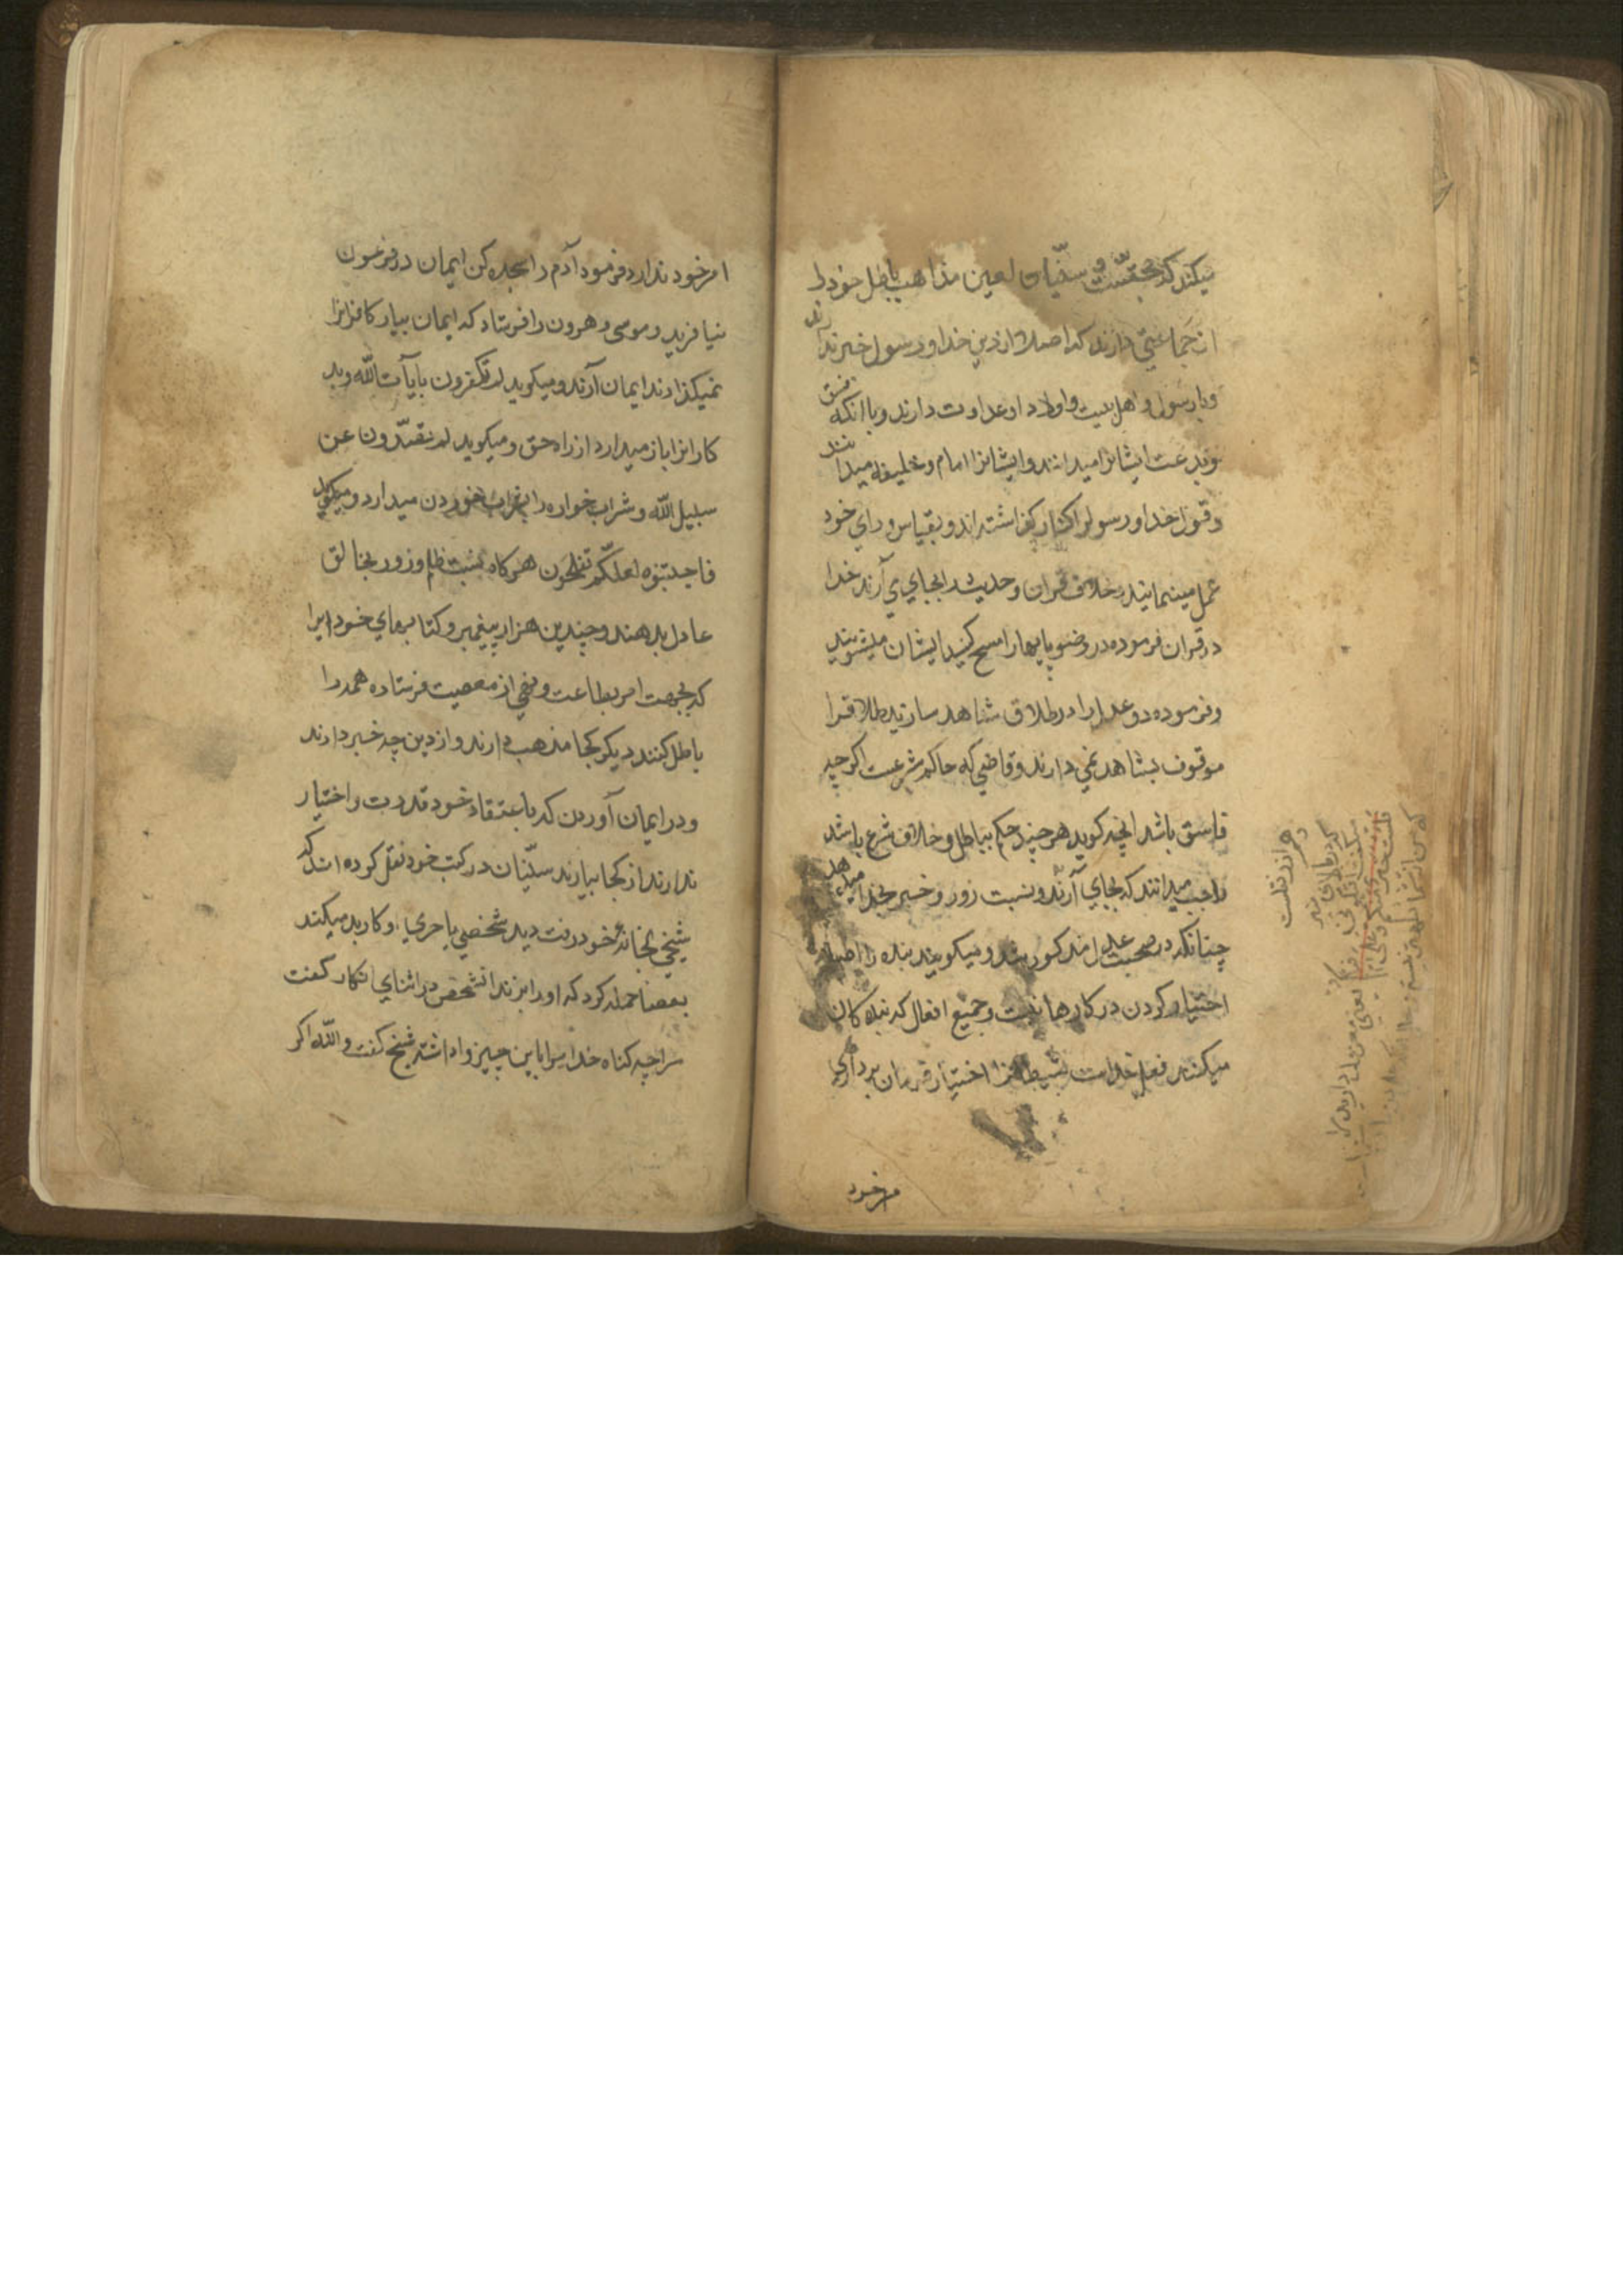 میکند که بحقست و سنّیان لعین مذاهب باطل خود را
از جماعتی دارند که اصلا از دین خدا و رسول خبر ندارند
و با رسول و اهل بیت و اولاد او عداوت دارند و با انکه فسق
و بدعت ایشانرا میدانند و ایشانرا امام و خلیفه میدانند
و قول خدا و رسول را کنار گذاشته‌اند و بقیاس و رای خود
عمل مینمایند و خلاف قران و حدیث را بجای می‌آرند خدا
در قران فرموده در وضو پایها را مسح کنید ایشان میشویند
و فرموده دو عدل را در طلاق شاهد سازید طلاقرا
موقوف بشاهد نمی دارند و قاضی که حاکم شرعست اکر چه
فاسق باشد انچه کوید هر چند حکم بباطل و خلاف شرع باشد
واجب میدانند که بجای آرند و نسبت زور و خسر بخدا میدهند
چنانکه در صحبت علی مذکور شد و میکویند بنده را اصلا
اختیار کردن در کارها نیست و جمیع افعال که بنده کان
میکنند فعل خداست شیطانرا اختیار فرمان برداری
امر خود
امر خود ندارد فرمود آدم را سجده کن ایمان در فرعون
نیافرید و موسی و هرون را فرستاد که ایمان بیار کافرانرا
نمیکذارند ایمان آرند و میکوید لم تکفرون بایآت الله و بد
کارانرا باز میدارد از راه حق و میکوید لم تصدّون عن
سبیل الله و شراب خواره را بشراب خوردن میدارد و میکوید
فاجتنبوه لعلّکم تفلحون هر کاه نسبت ظلم و زور بخالق
عادل بدهند و چندین هزار پیغمبر و کتابهای خود را
که بجهت امر بطاعت و نهی از معصیت فرستاده همه را
باطل کنند دیکر کجا مذهب دارند و از دین چه خبر دارند
و در ایمان آوردن که باعتقاد خود قدرت و اختیار
ندارند از کجا بیارند سنّیان در کتب خود نقل کرده اند که
شیخی بخانهٔ خود رفت دید شخصی با حرم او کار بد میکند
بعصا حمله کرد که او را بزند انشخص در اثنای انکار کفت
مرا چه کناه خدا مرا باین چیز واداشته شیخ کفت و الله اکر